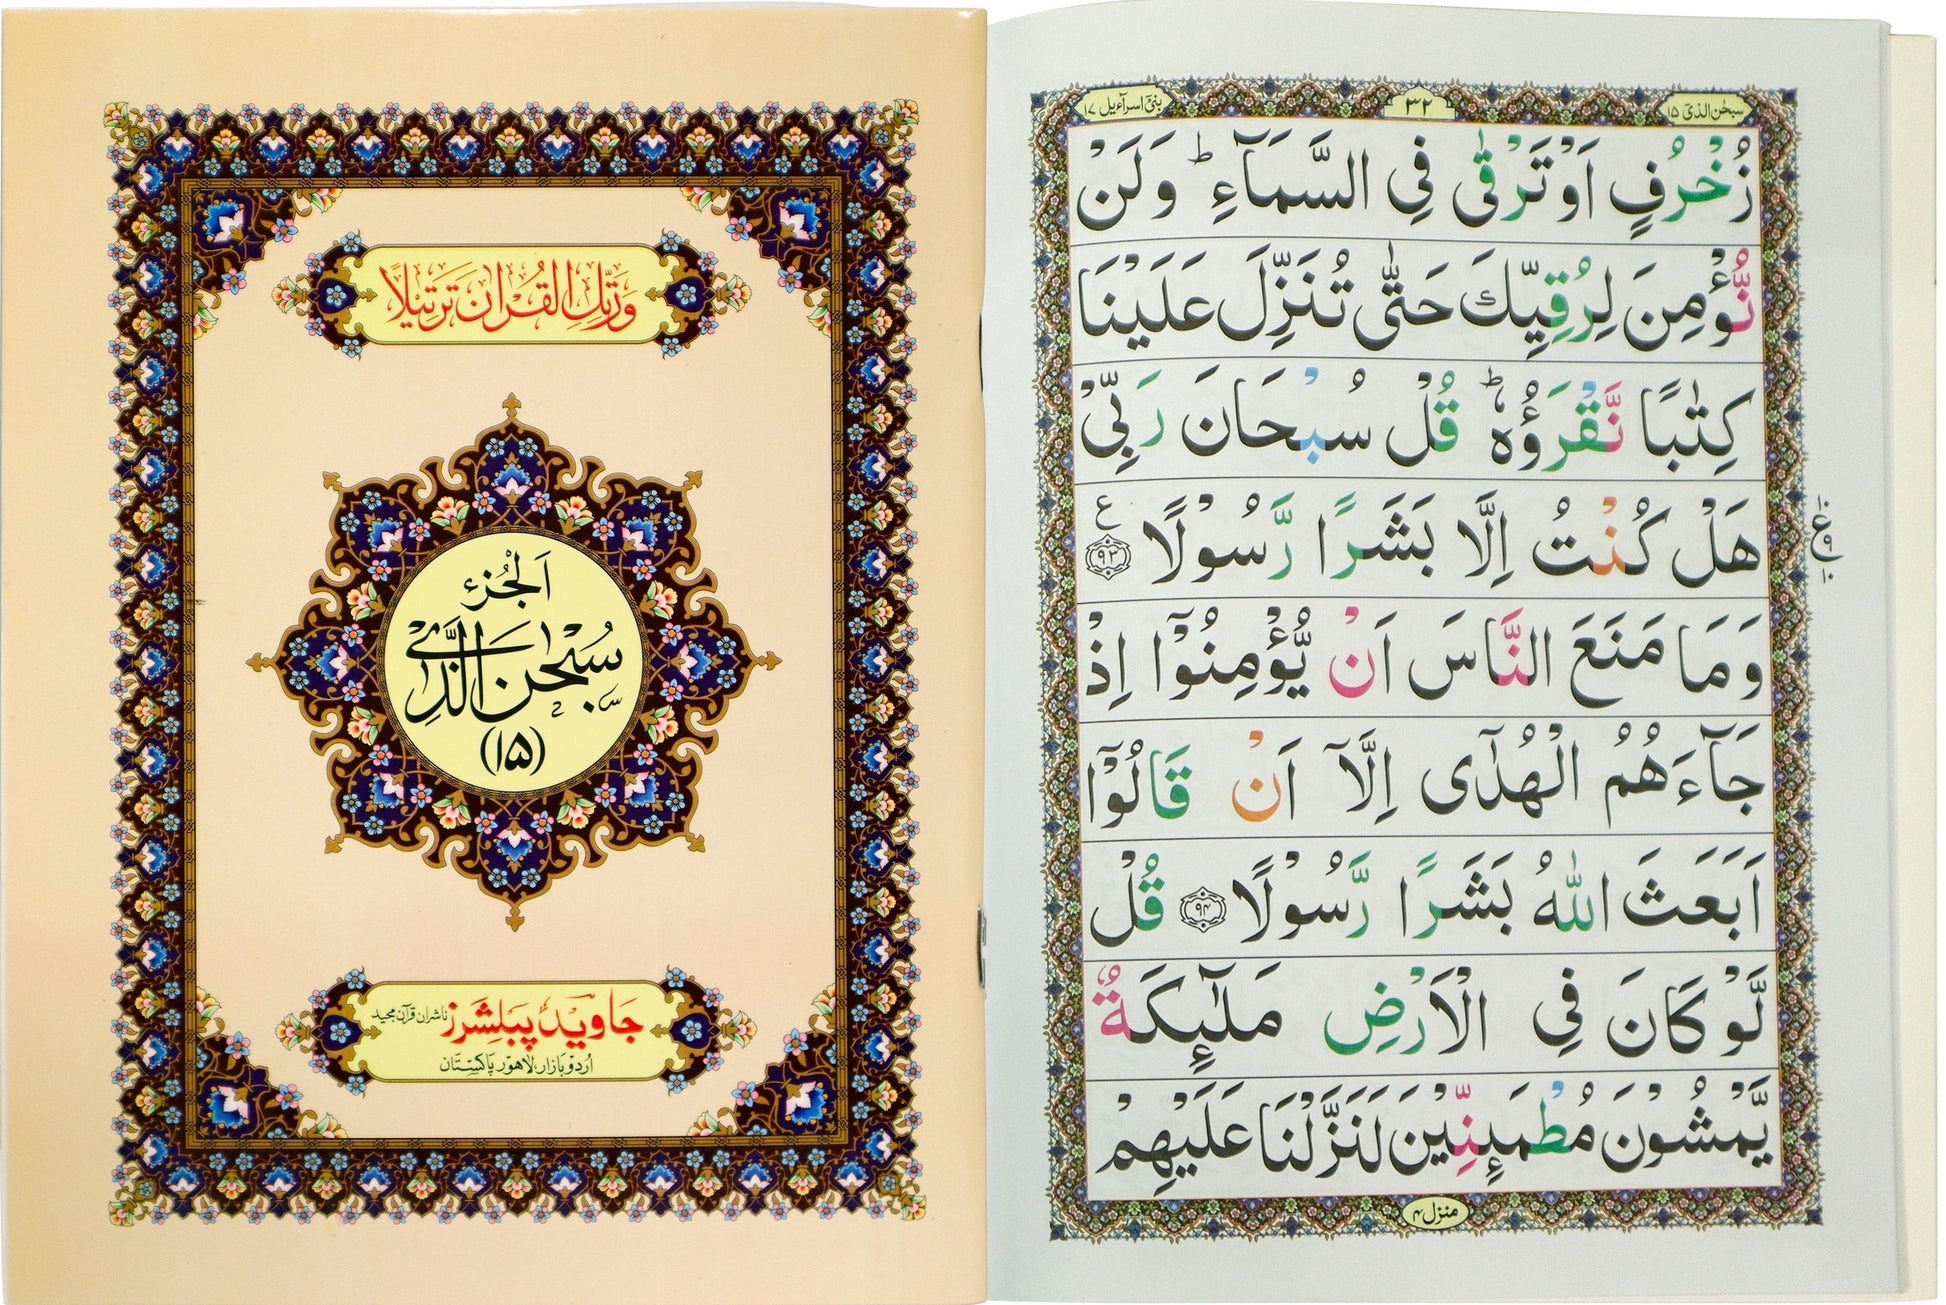 وَرَتِّلِ الْقُرْاٰنَ تَرْتِيْلًا
اَلْجُزْءُ
سُبْحٰنَ الَّذِيْۤ
(۱۵)
جاوید پبلشرز ناشران قرآن مجید
اُردو بازار، لاہور پاکستان
سبحٰن الذیۤ ۱۵
۳۲
بنیۤ اسرآءیل ۱۷
زُخْرُفٍ اَوْ تَرْقٰى فِى السَّمَآءِ ؕ وَلَنْ
نُّؤْمِنَ لِرُقِيِّكَ حَتّٰى تُنَزِّلَ عَلَيْنَا
كِتٰبًا نَّقْرَؤُهٗ ؕ قُلْ سُبْحَانَ رَبِّىْ
هَلْ كُنْتُ اِلَّا بَشَرًا رَّسُوْلًا ﴿۹۳﴾ ع
۱۰ ع ۹ ۱۰
وَمَا مَنَعَ النَّاسَ اَنْ يُّؤْمِنُوْۤا اِذْ
جَآءَهُمُ الْهُدٰٓى اِلَّاۤ اَنْ قَالُوْۤا
اَبَعَثَ اللّٰهُ بَشَرًا رَّسُوْلًا ﴿۹۴﴾ قُلْ
لَّوْ كَانَ فِى الْاَرْضِ مَلٰٓئِكَةٌ
يَّمْشُوْنَ مُطْمَئِنِّيْنَ لَنَزَّلْنَا عَلَيْهِمْ
منزل ۴